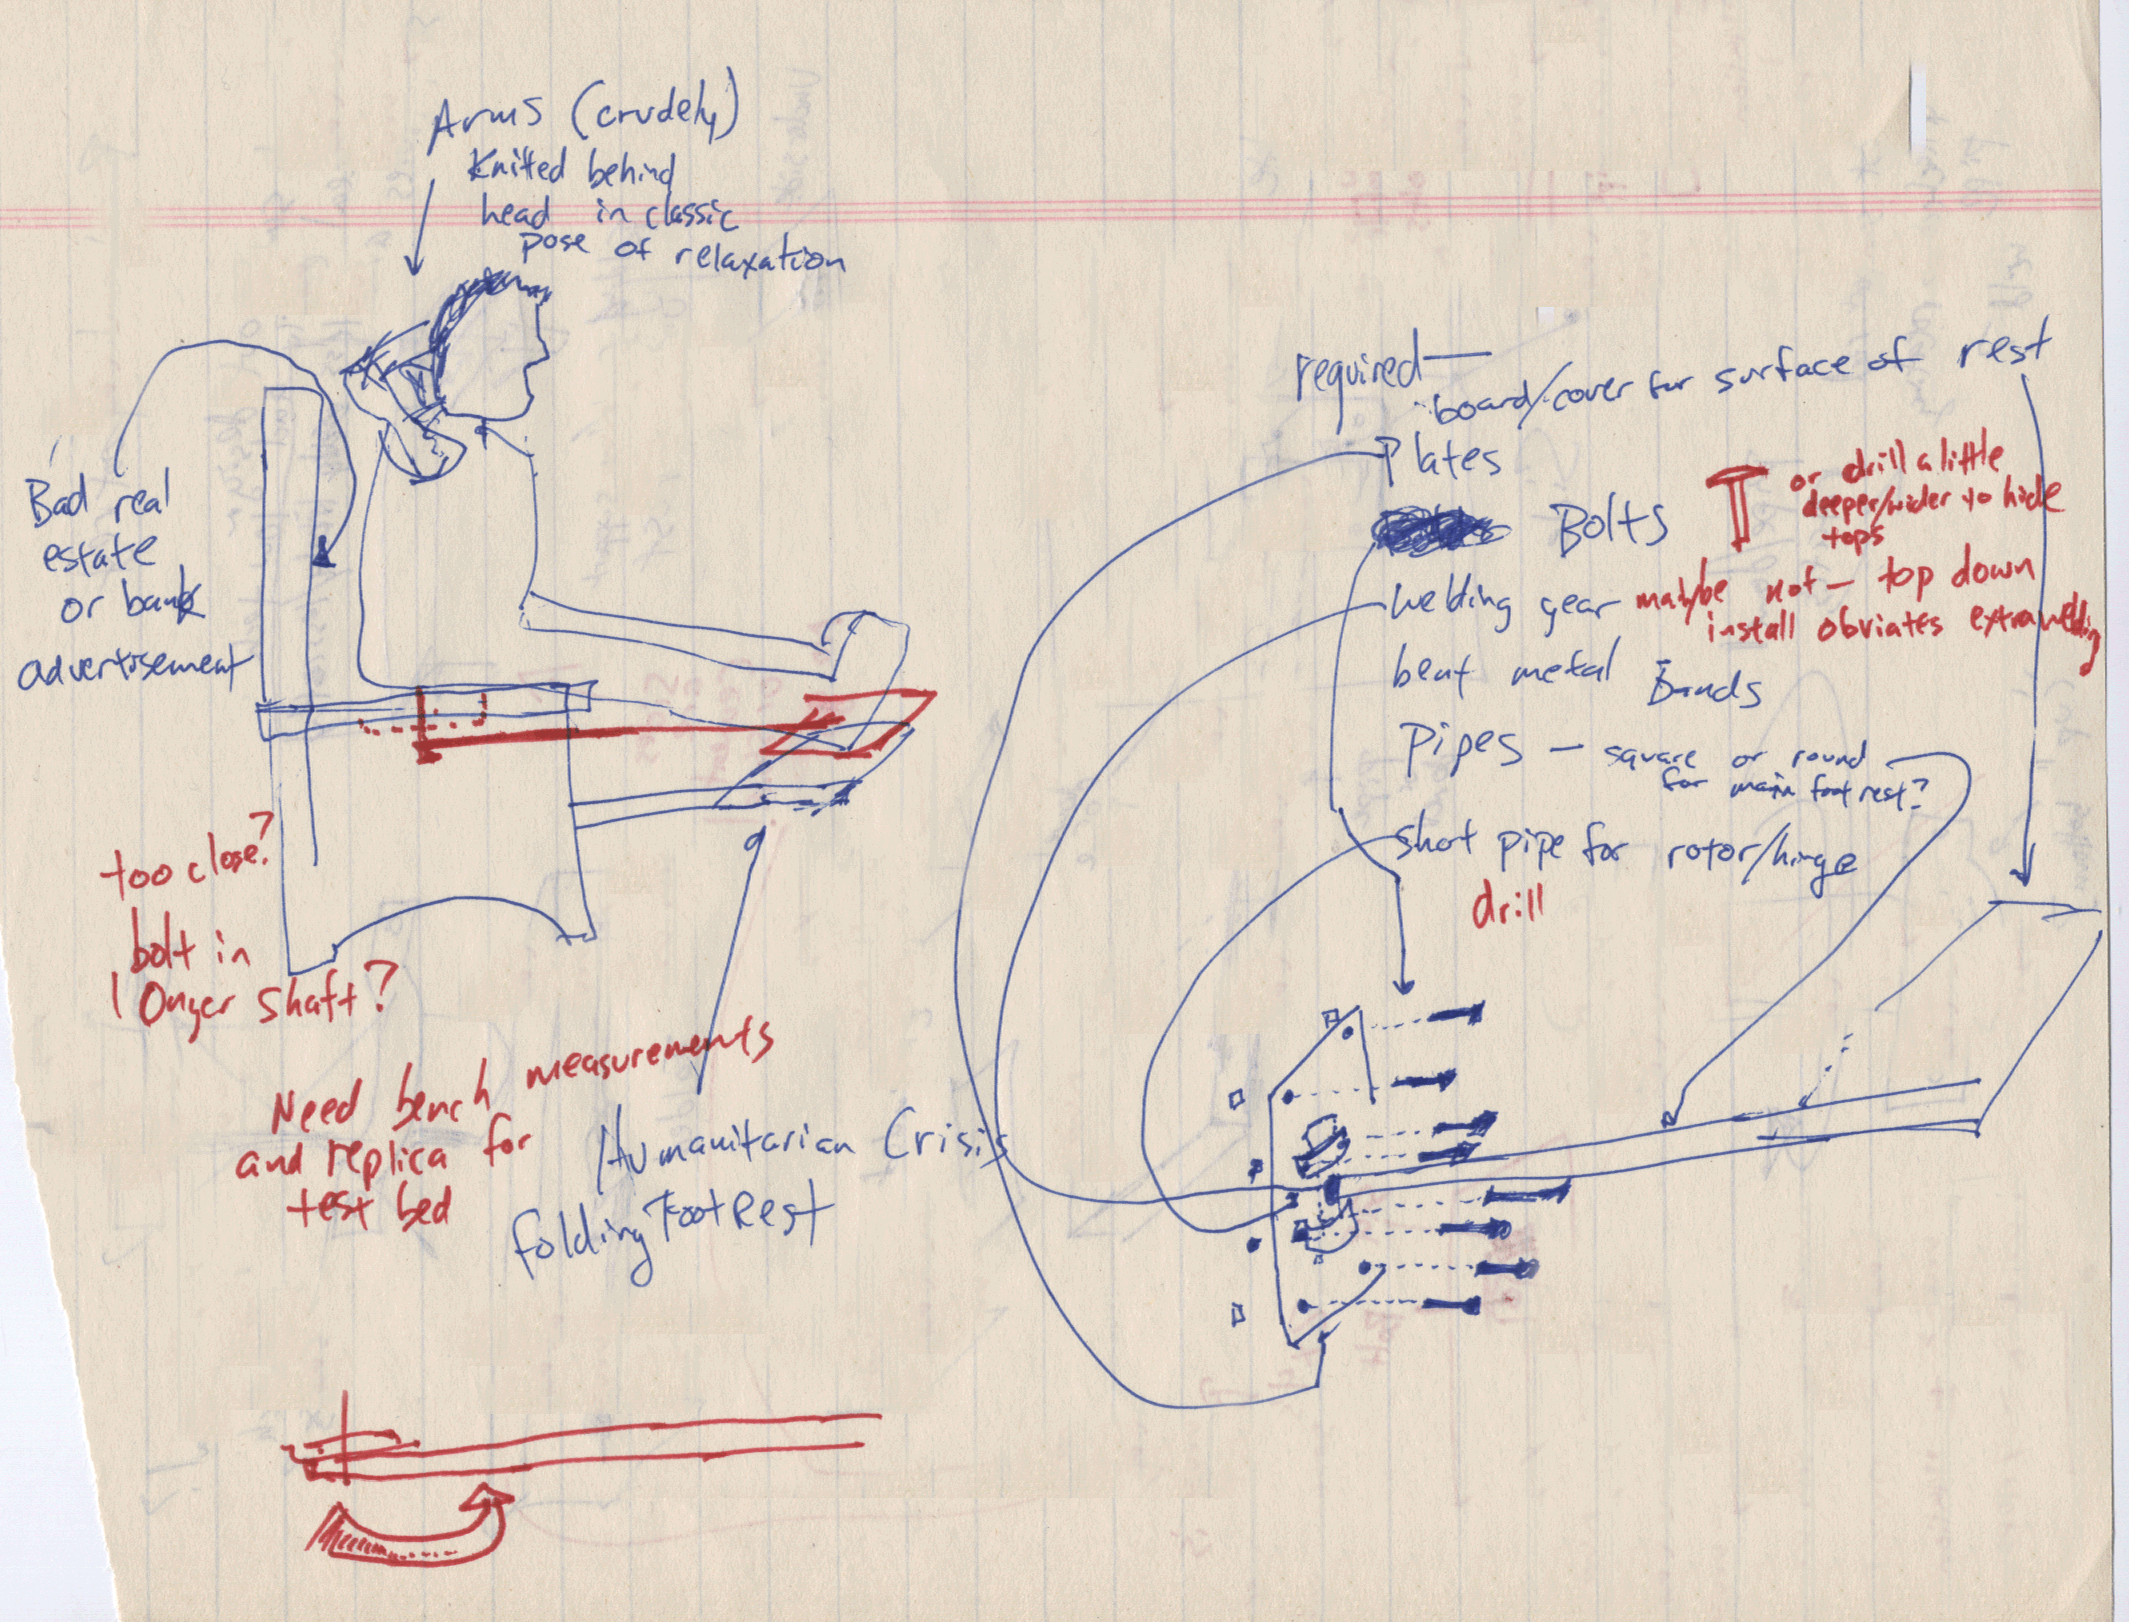 Arms (crudely)
Knitted behind
head in classic
pose of relaxation
Bad real
estate
or bank
advertisement
too close?
bolt in
longer shaft?
Need bench measurements
and replica for
test bed
Humanitarian Crisis
folding Foot Rest
required —
board/cover for surface of rest
Plates
Bolts
or drill a little
deeper/wider to hide
tops
welding gear
maybe not — top down
install obviates extra welding
bent metal Bands
Pipes — square or round
for main foot rest?
short pipe for rotor/hinge
drill